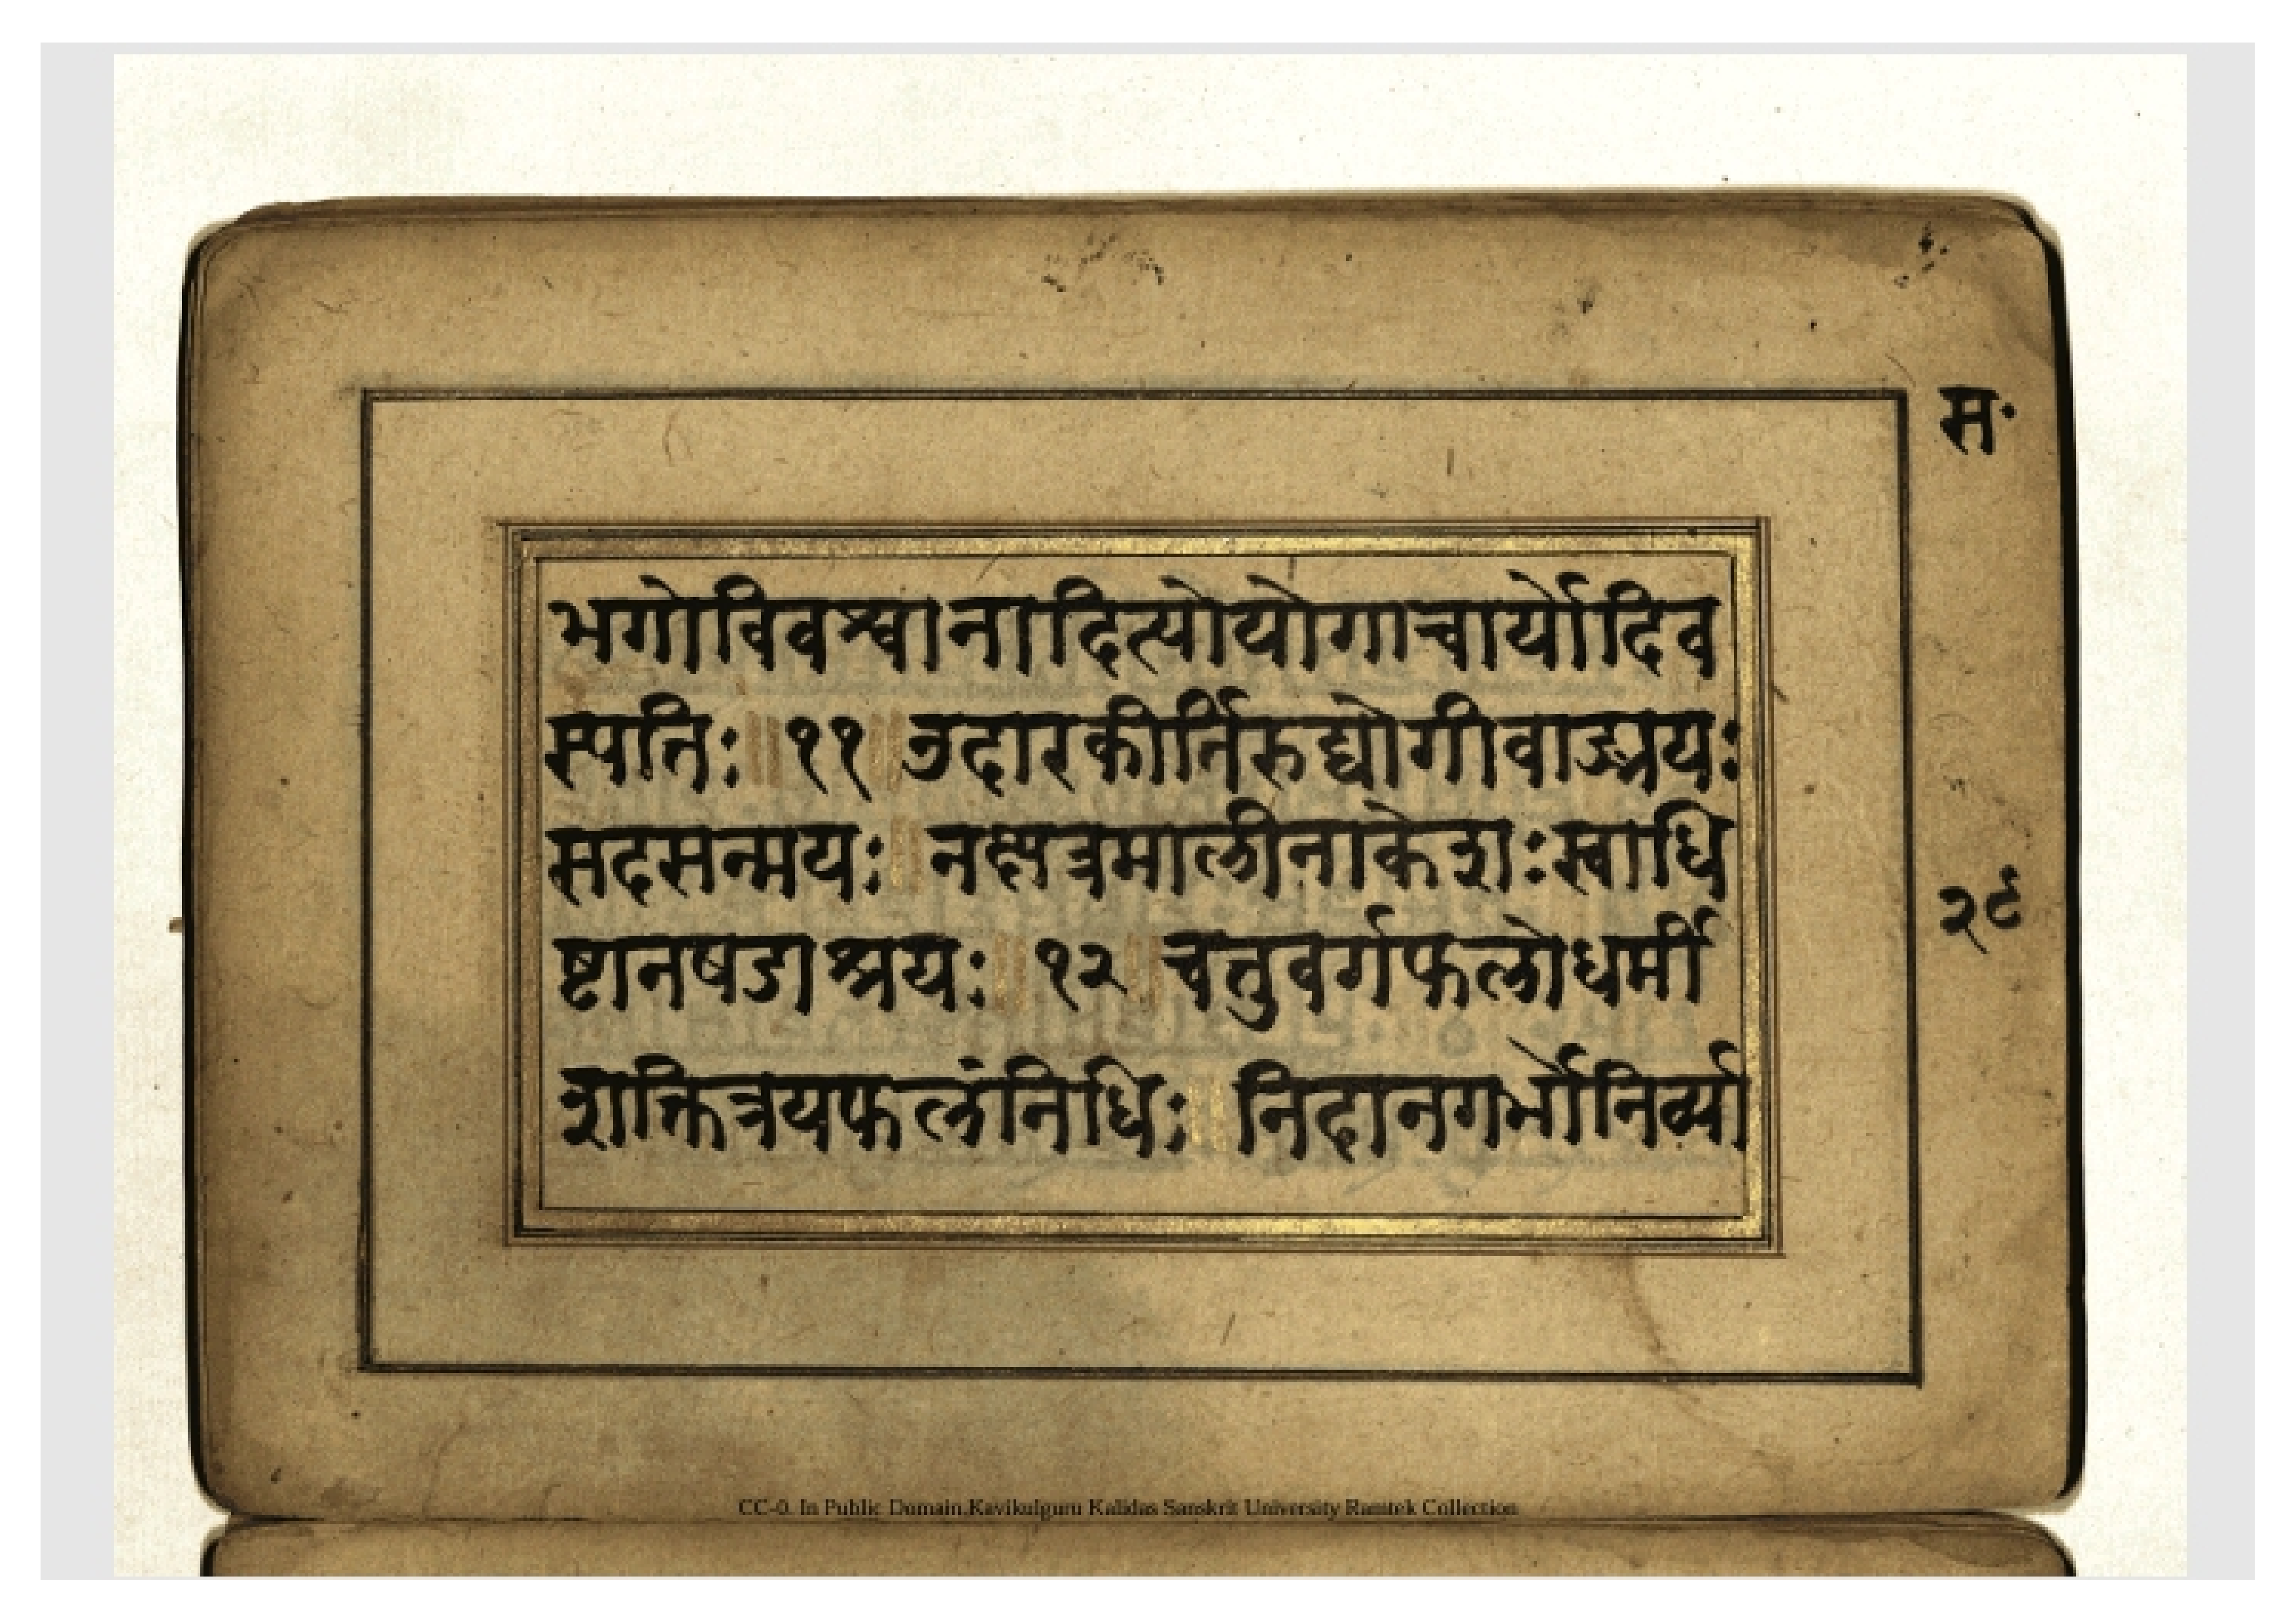 स॰
भगोविवश्वानादित्योयोगाचार्योदिव
स्पतिः॥११॥उदारकीर्तिरुद्योगीवाङ्मयः
सदसन्मयः॥नक्षत्रमालीनाकेशःस्वाधि
ष्टानषडाश्रयः॥१२॥चतुवर्गफलोधर्मी
शक्तित्रयफलंनिधिः॥निदानगर्भोनिर्व्या
२९
CC-0. In Public Domain.Kavikulguru Kalidas Sanskrit University Ramtek Collection